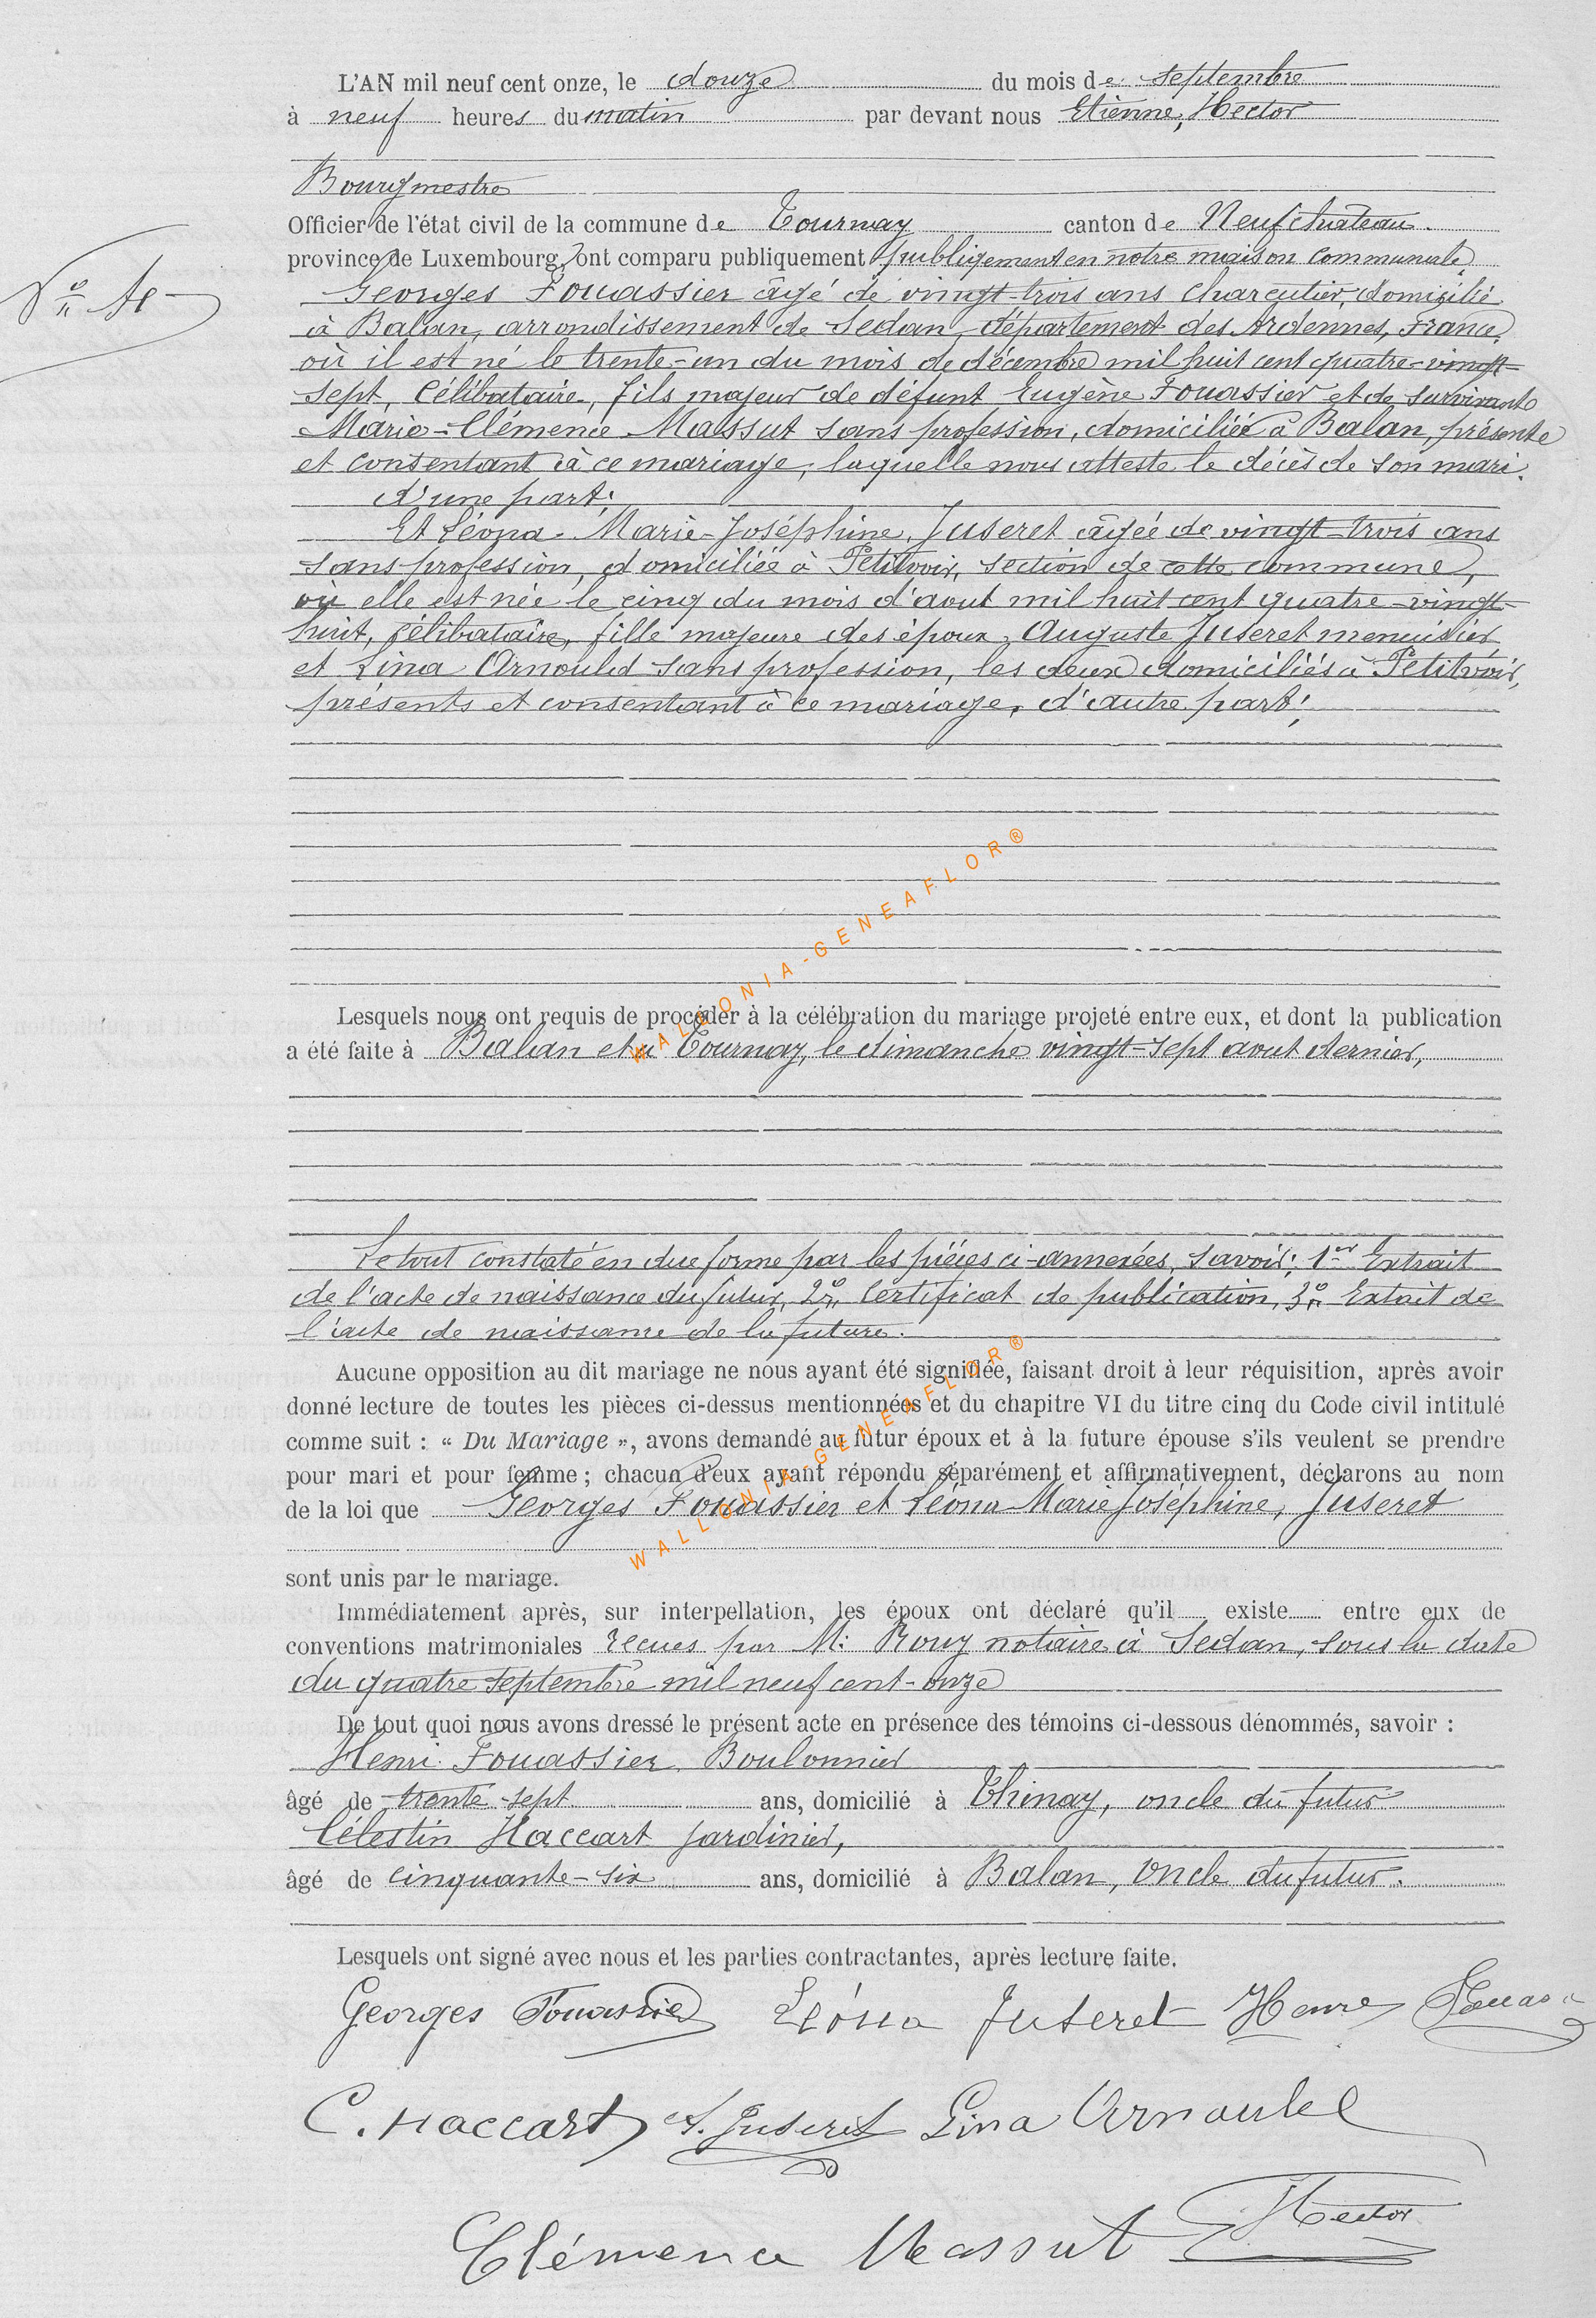 L'AN mil neuf cent onze, le douze du mois de septembre
à neuf heures du matin par devant nous Etienne, Hector
Bourgmestre
Officier de l'état civil de la commune de Tournay canton de Neufchateau.
province de Luxembourg, ont comparu publiquement publiquement en notre maison communale
N° 4
Georges Fouassier âgé de vingt-trois ans charcutier, domicilié
à Balan, arrondissement de Sedan, département des Ardennes, France,
où il est né le trente-un du mois de décembre mil huit cent quatre-vingt-
sept, célibataire, fils majeur de défunt Eugène Fouassier et de survivante
Marie-Clémence Massut sans profession, domiciliée à Balan, présente
et consentant à ce mariage, laquelle nous atteste le décès de son mari.
d'une part;
Et Léona-Marie-Joséphine, Juseret âgée de vingt-trois ans
sans profession, domiciliée à Petitvoir, section de cette commune,
où elle est née le cinq du mois d'aout mil huit cent quatre-vingt-
huit, célibataire, fille majeure des époux, Auguste Juseret menuisier
et Lina Arnould sans profession, les deux domiciliés à Petitvoir,
présents et consentant à ce mariage, d'autre part;
Lesquels nous ont requis de procéder à la célébration du mariage projeté entre eux, et dont la publication
a été faite à Balan et à Tournay, le dimanche vingt-sept aout dernier,
WALLONIA-GENEAFLOR®
Le tout constaté en due forme par les pièces ci-annexées, savoir: 1er Extrait
de l'acte de naissance du futur, 2° Certificat de publication, 3° Extait de
l'acte de naissance de la future.
Aucune opposition au dit mariage ne nous ayant été signifiée, faisant droit à leur réquisition, après avoir
donné lecture de toutes les pièces ci-dessus mentionnées et du chapitre VI du titre cinq du Code civil intitulé
comme suit : « Du Mariage », avons demandé au futur époux et à la future épouse s'ils veulent se prendre
pour mari et pour femme ; chacun d'eux ayant répondu séparément et affirmativement, déclarons au nom
de la loi que Georges Fouassier et Léona-Marie Joséphine, Juseret
WALLONIA-GENEAFLOR®
sont unis par le mariage.
Immédiatement après, sur interpellation, les époux ont déclaré qu'il existe entre eux de
conventions matrimoniales recues par M. Rouy notaire à Sedan, sous la date
du quatre septembre mil neuf cent-onze
De tout quoi nous avons dressé le présent acte en présence des témoins ci-dessous dénommés, savoir :
Henri Fouassier Boulonnier
âgé de trente-sept ans, domicilié à Thinay, oncle du futur
Célestin Haccart jardinier,
âgé de cinquante-six ans, domicilié à Balan, oncle du futur.
Lesquels ont signé avec nous et les parties contractantes, après lecture faite.
Georges Fouassier Léona Juseret Henri
C. Haccart A. Juseret Lina Arnould
Clémence Massut Hector